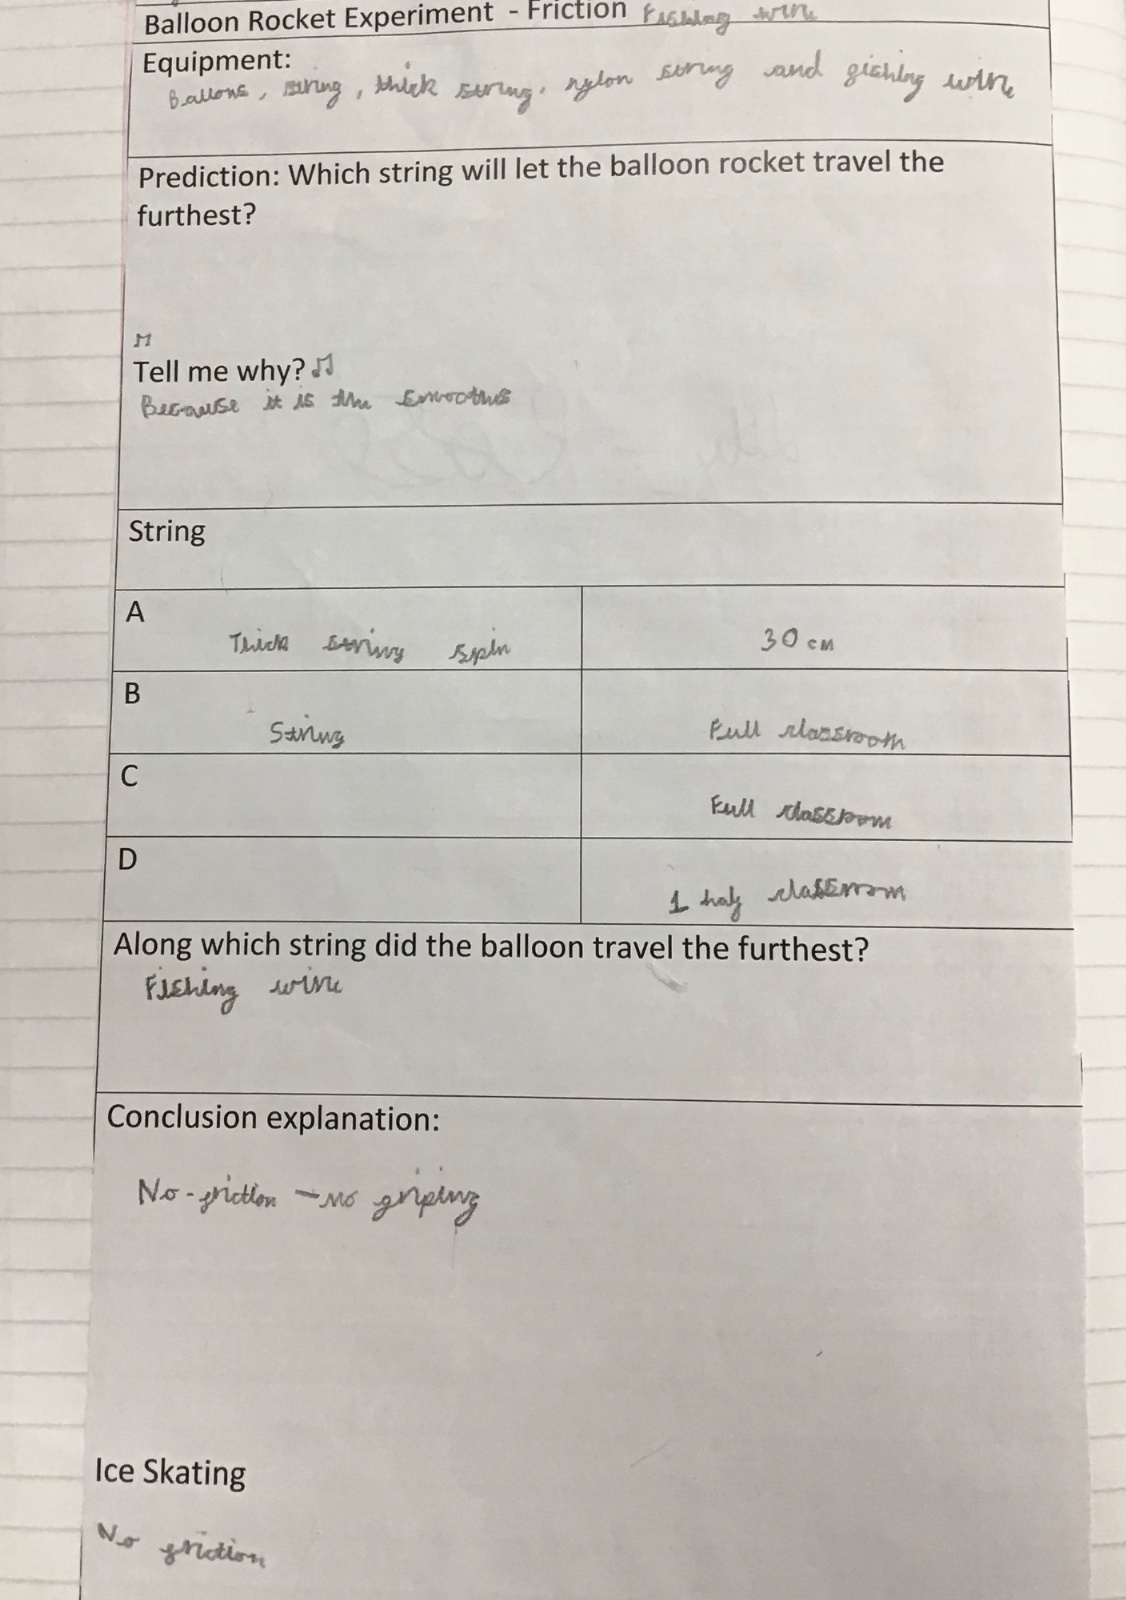 Balloon Rocket Experiment - Friction Fishing wire
Equipment:
Ballons, string, thick string, nylon string and fishing wire
Prediction: Which string will let the balloon rocket travel the
furthest?
♫
Tell me why?♫
Because it is the smooths
String
A
Thick string spin
30 cm
B
String
Full classroom
C
Full classroom
D
1 half classroom
Along which string did the balloon travel the furthest?
Fishing wire
Conclusion explanation:
No-friction - no griping
Ice Skating
No friction